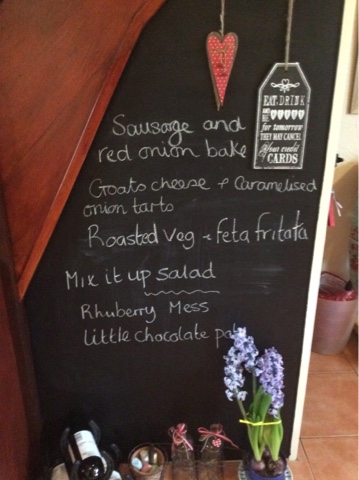 EAT, DRINK
AND BE
for tomorrow
THEY MAY CANCEL
Your credit
CARDS
Sausage and
red onion bake
Goats cheese + Caramelised
onion tarts
Roasted Veg + feta fritata
Mix it up salad
Rhuberry Mess
little chocolate